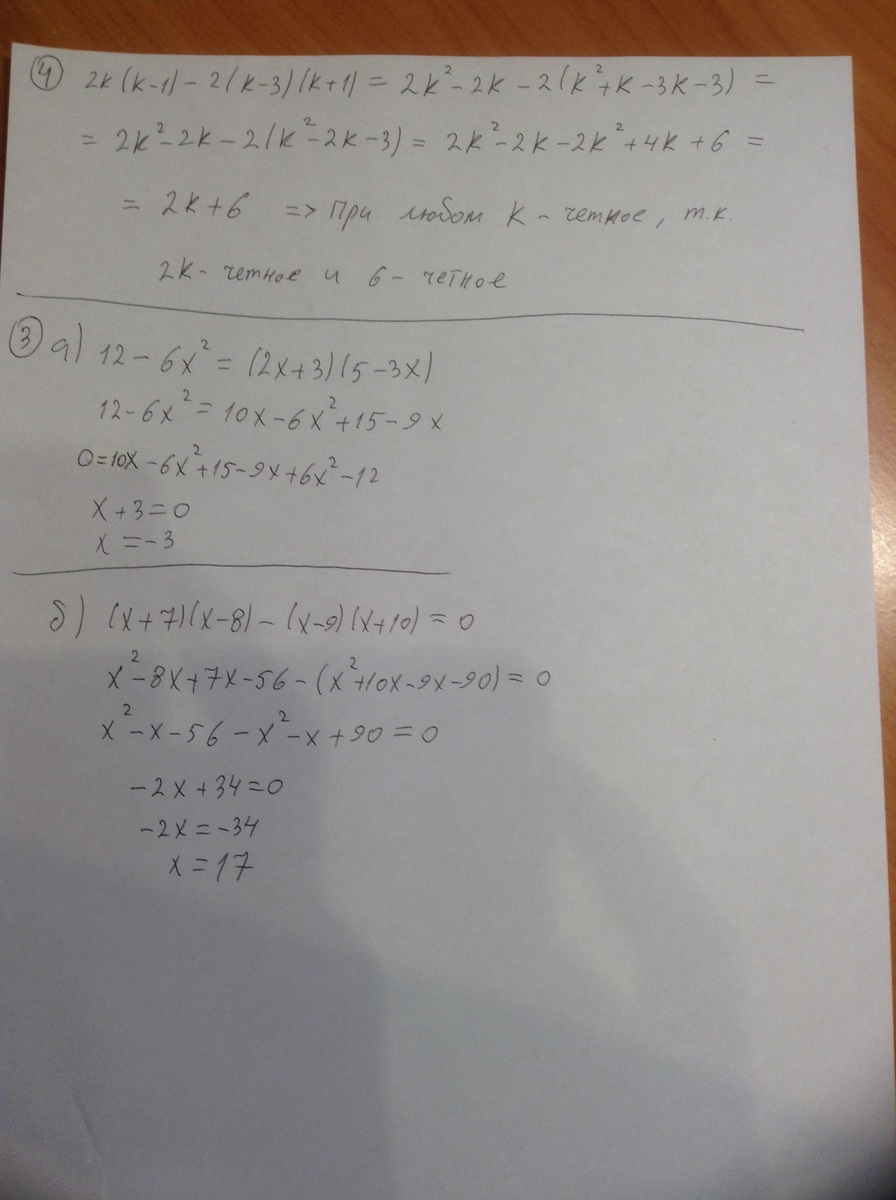 ④ 2k(k-1) - 2(k-3)(k+1) = 2k² - 2k - 2(k² + k - 3k - 3) =
= 2k² - 2k - 2(k² - 2k - 3) = 2k² - 2k - 2k² + 4k + 6 =
= 2k + 6 => При любом k - четное, т.к.
2k - четное и 6 - четное
③ а) 12 - 6x² = (2x+3)(5-3x)
12 - 6x² = 10x - 6x² + 15 - 9x
0 = 10x - 6x² + 15 - 9x + 6x² - 12
x + 3 = 0
x = -3
б) (x+7)(x-8) - (x-9)(x+10) = 0
x² - 8x + 7x - 56 - (x² + 10x - 9x - 90) = 0
x² - x - 56 - x² - x + 90 = 0
-2x + 34 = 0
-2x = -34
x = 17